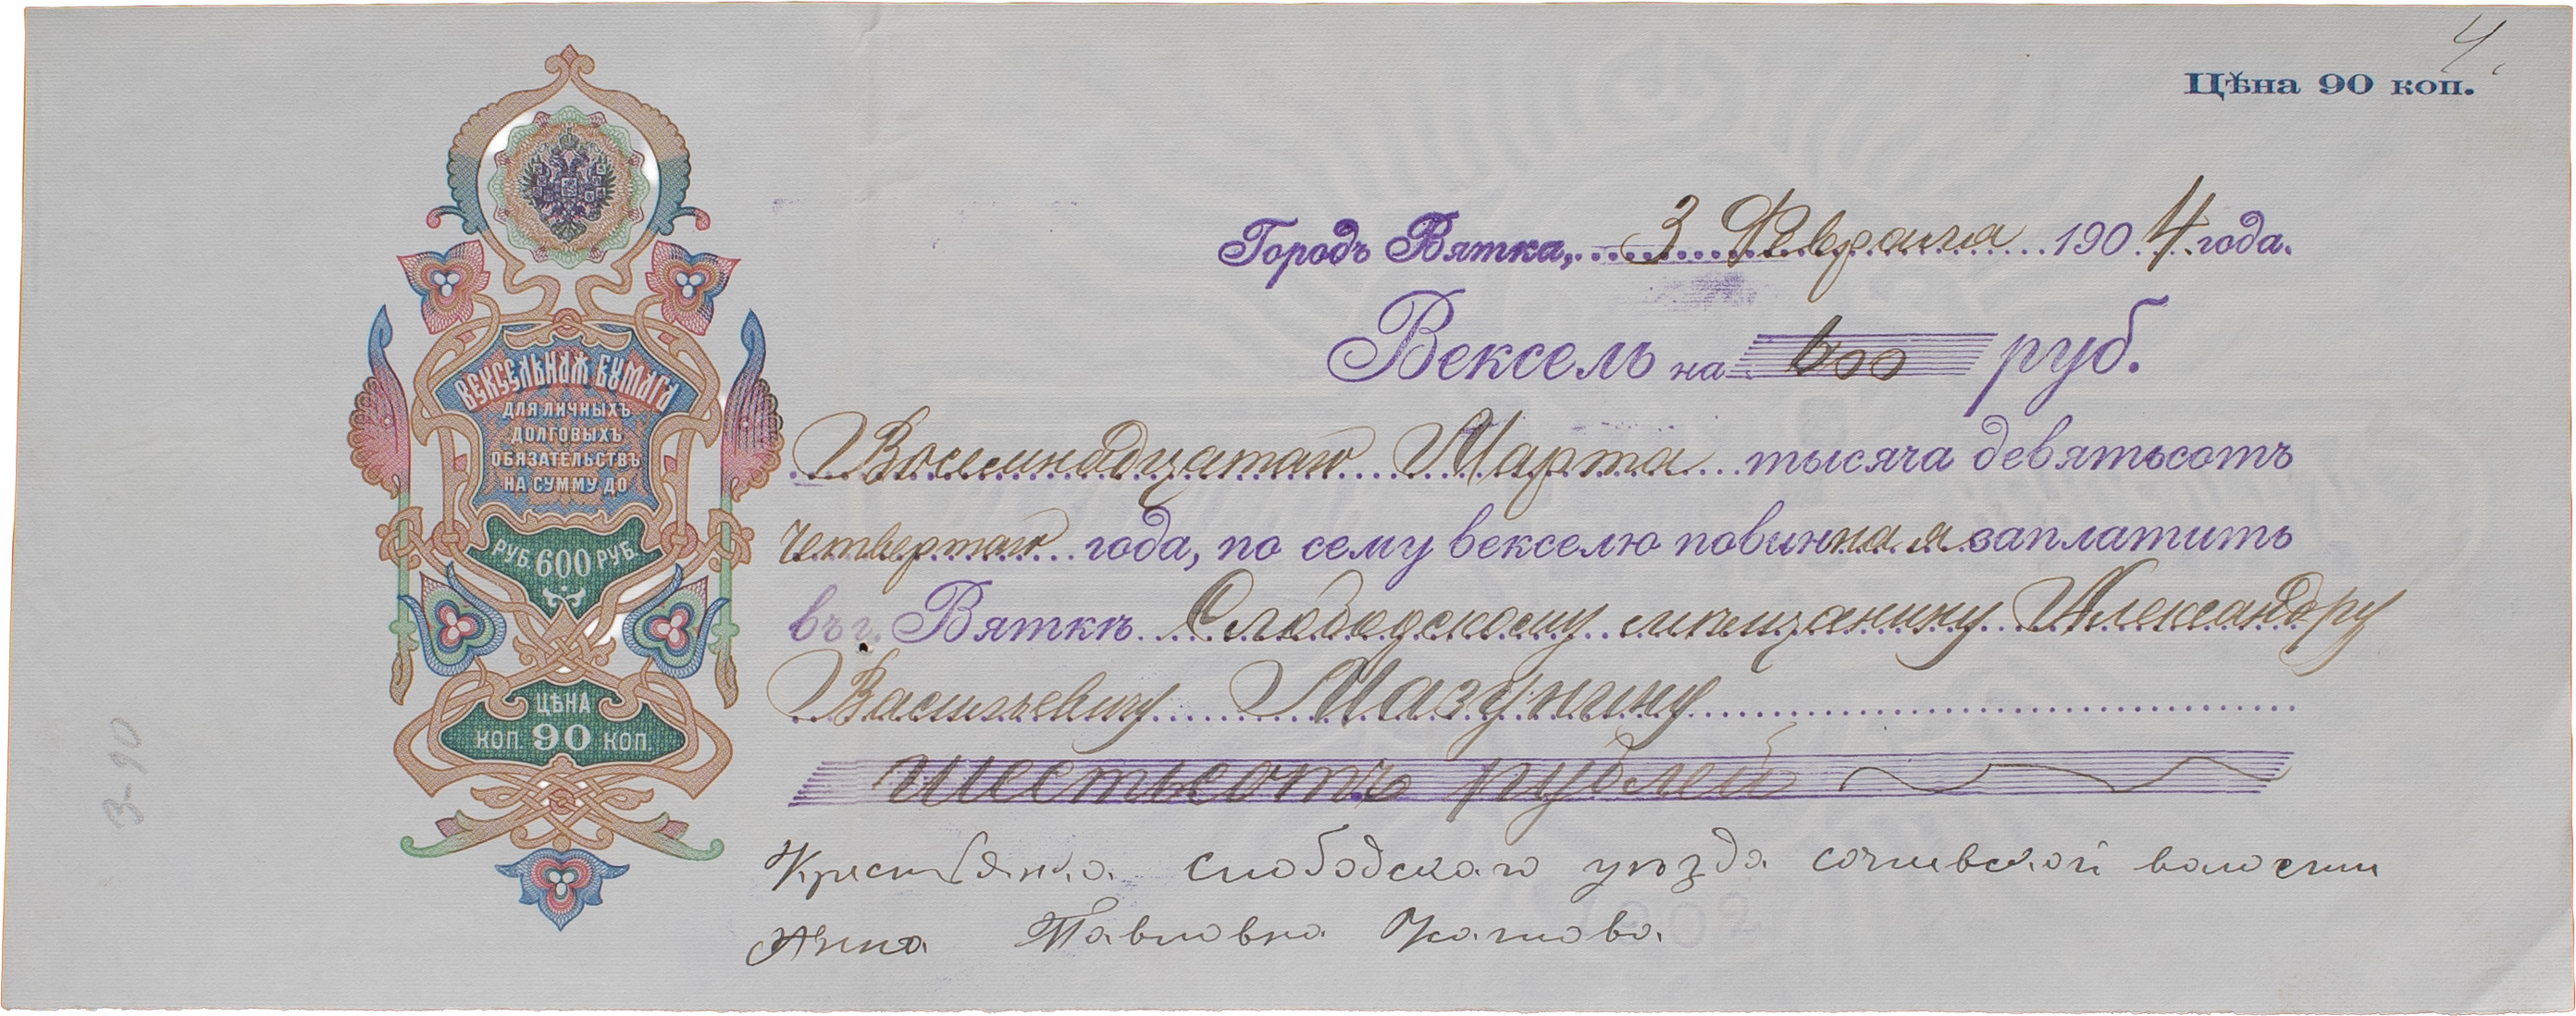 4
Цѣна 90 коп.
Городъ Вятка, 3 Февраля 1904 года.
Вексель на 600 руб.
Восемнадцатаго Марта тысяча девятьсотъ
четвертаго года, по сему векселю повинна я заплатить
въ г. Вяткѣ Слободскому мѣщанину Александру
Васильевичу Мазунину
шестьсотъ рублей
Крестьянка слободскаго уѣзда волости
Анна Павловна
ВЕКСЕЛЬНАЯ БУМАГА
ДЛЯ ЛИЧНЫХЪ
ДОЛГОВЫХЪ
ОБЯЗАТЕЛЬСТВЪ
НА СУММУ ДО
РУБ. 600 РУБ.
ЦѢНА
КОП. 90 КОП.
3-90
1902